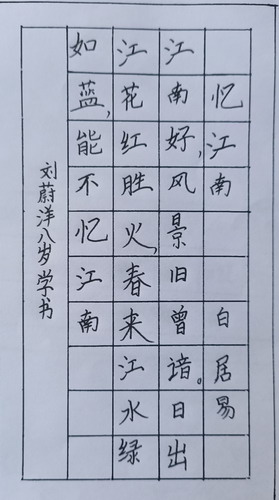 忆江南 白居易
江南好,风景旧曾谙。日出
江花红胜火,春来江水绿
如蓝,能不忆江南
刘蔚洋八岁学书